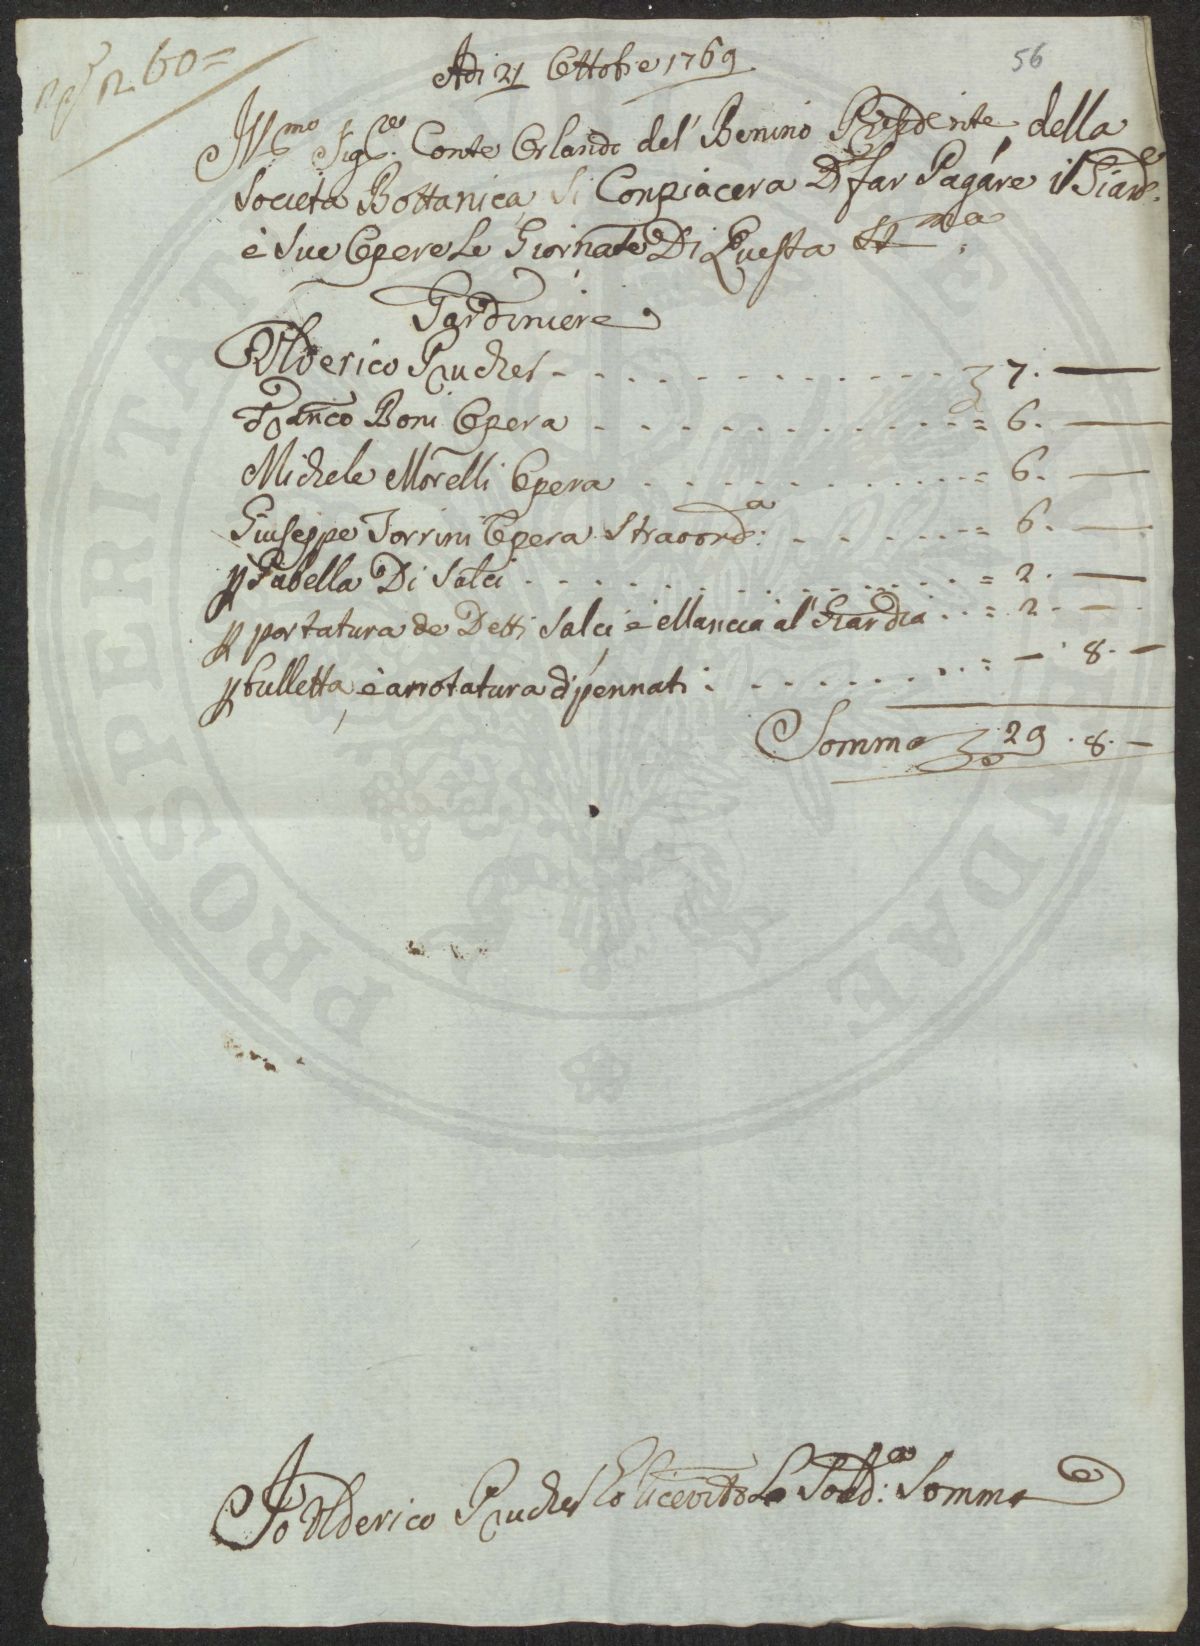 60=
56
Adi 21 Ottobre 1769
Ill.mo Sig.re Conte Orlando del' Benino Presidente della
Società Bottanica, si Conpiacera Di far Pagáre il Giard.e
è sue Opere Le Giornate Di Questa
Gardiniere
Ulderico Prucher - - - - - - - - - - - - 7. —
Franco Boni Opera - - - - - - - - - - = 6. —
Michele Morelli Opera - - - - - - - - - = 6. —
Giuseppe Torrini Opera Straoord:a - - - - - = 6. —
p Gabella Di Salci - - - - - - - - - - - = 2. —
p portatura de Detti Salci è ál' Giardia . . = 2. —
p bulletta è arrotatura di pennati : - - - - - . . = — 8. —
Somma 29. 8. —
Io Ulderico Prucher ò ricevuto La Sodd:a Somma
PROSPERITATI